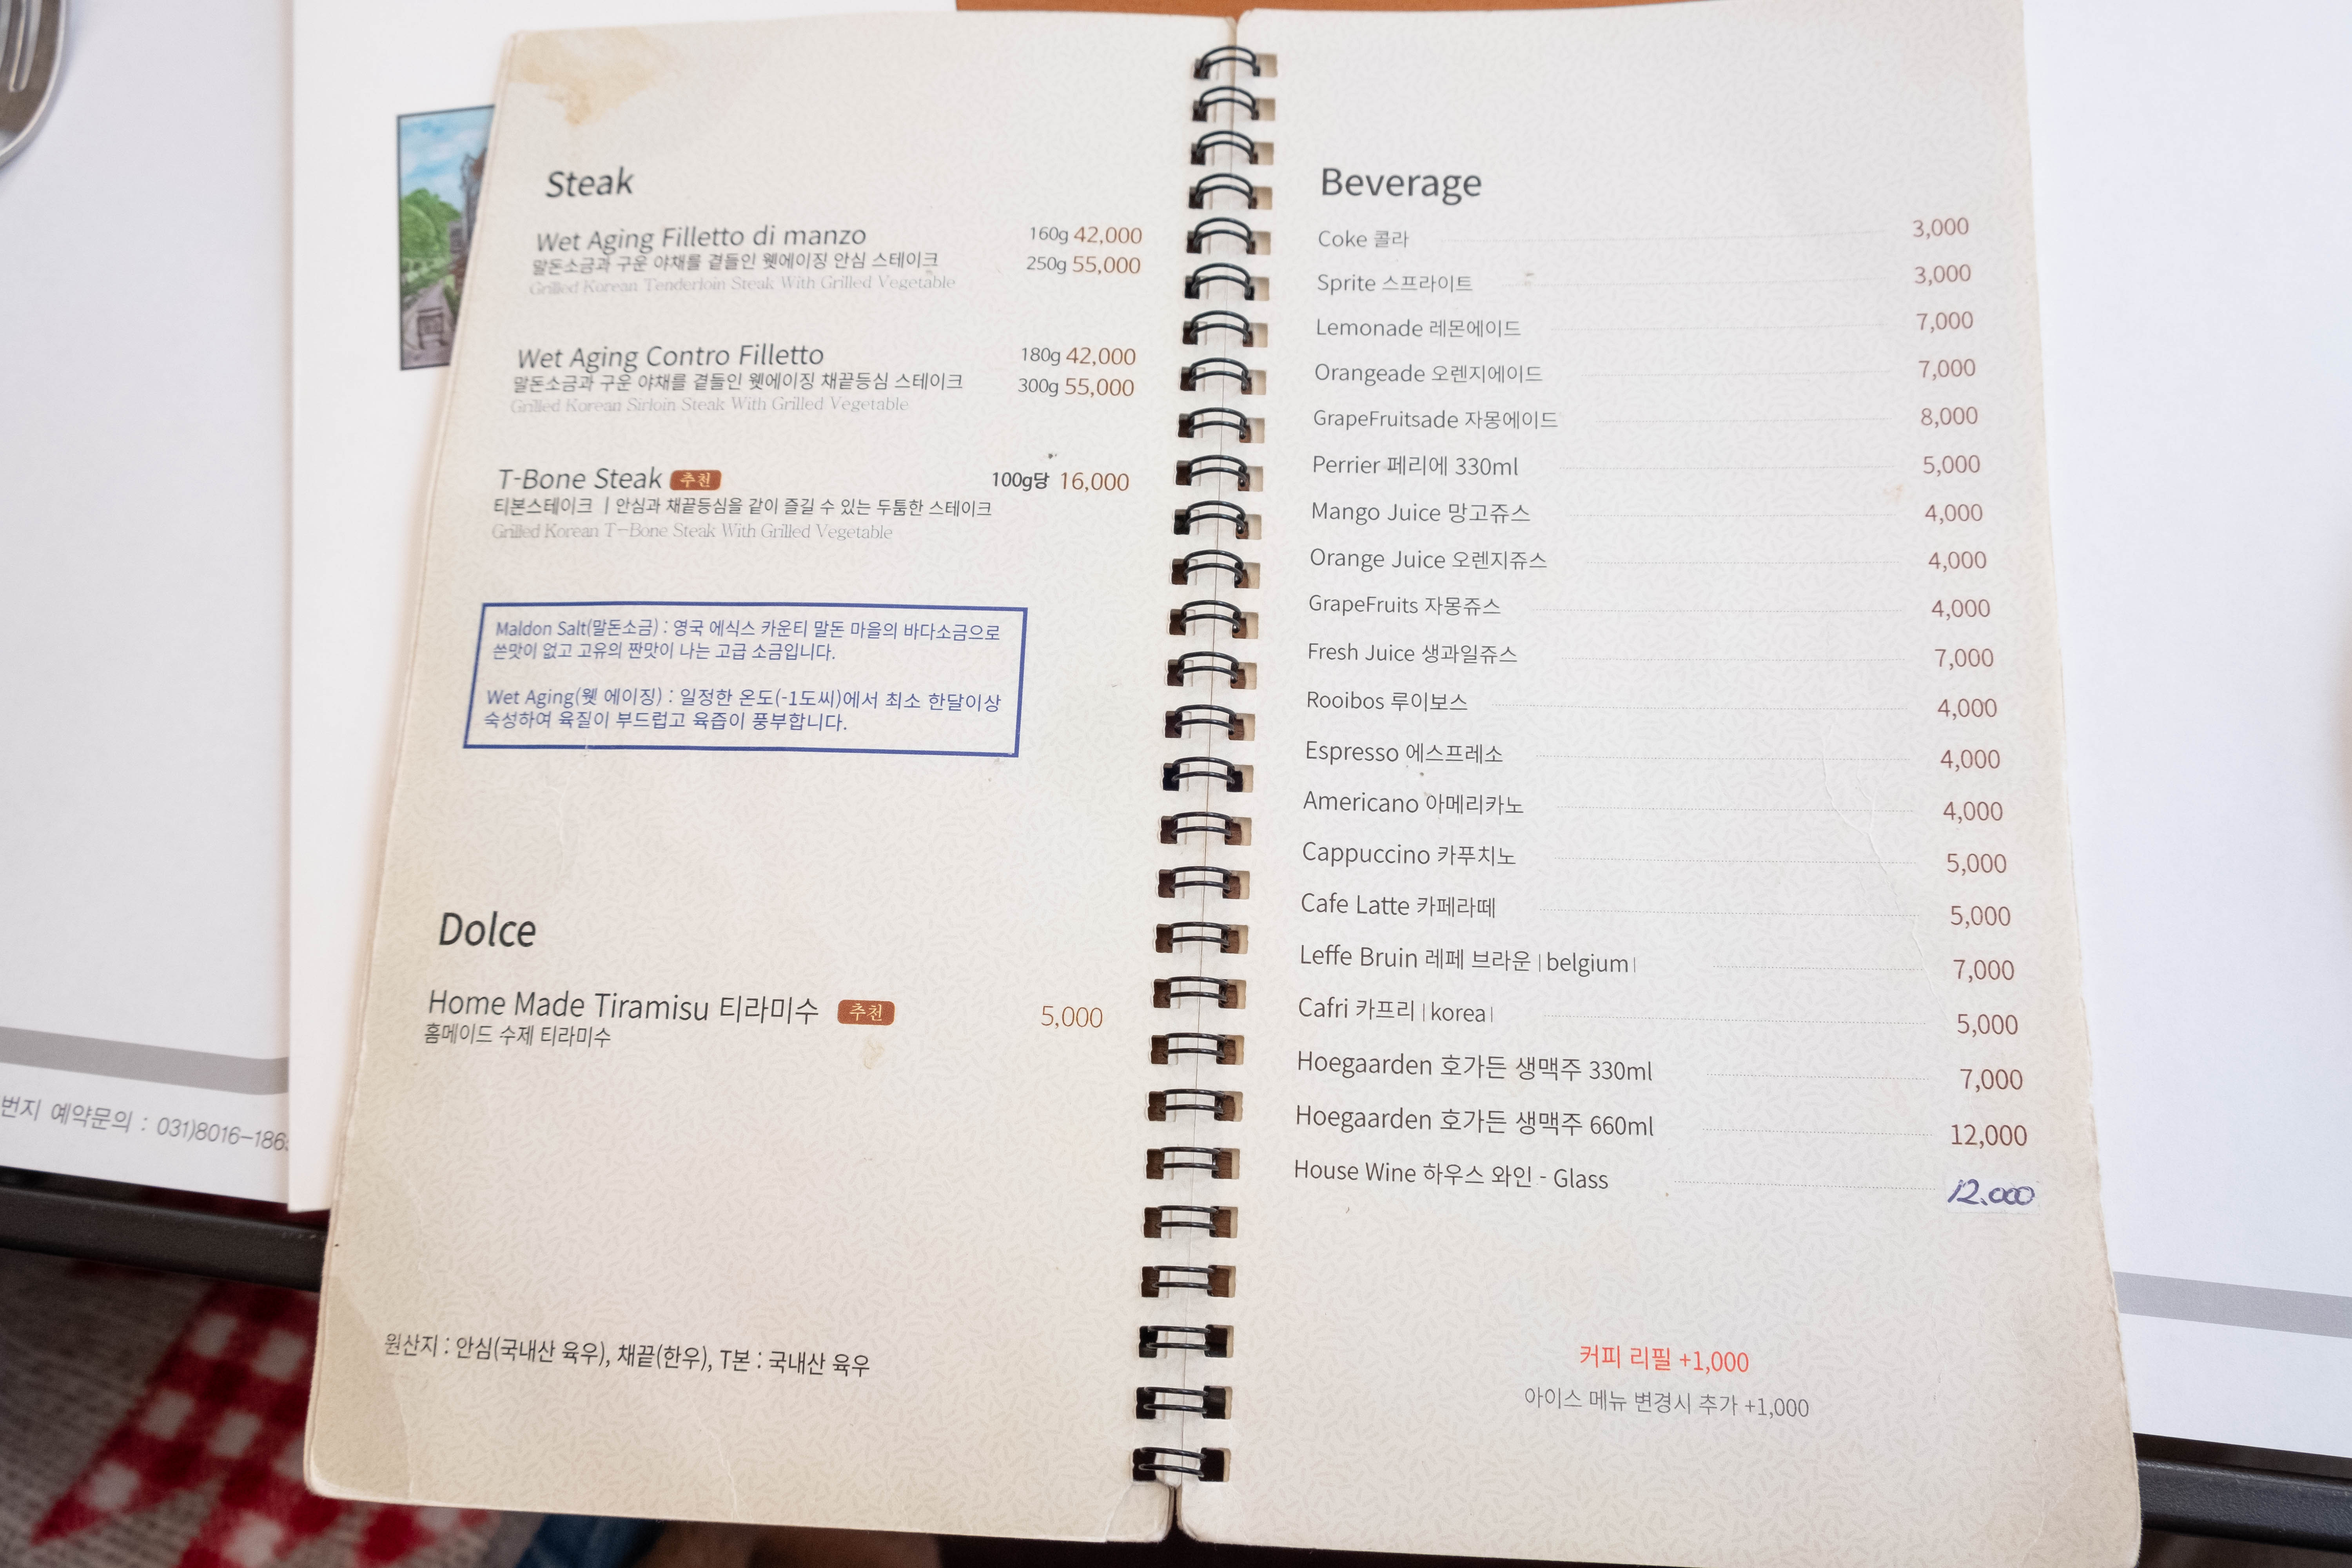 Steak
Wet Aging Filletto di manzo 160g 42,000
말돈소금과 구운 야채를 곁들인 웻에이징 안심 스테이크 250g 55,000
Grilled Korean Tenderloin Steak With Grilled Vegetable
Wet Aging Contro Filletto 180g 42,000
말돈소금과 구운 야채를 곁들인 웻에이징 채끝등심 스테이크 300g 55,000
Grilled Korean Sirloin Steak With Grilled Vegetable
T-Bone Steak 추천 100g당 16,000
티본스테이크 | 안심과 채끝등심을 같이 즐길 수 있는 두툼한 스테이크
Grilled Korean T-Bone Steak With Grilled Vegetable
Maldon Salt(말돈소금) : 영국 에식스 카운티 말돈 마을의 바다소금으로
쓴맛이 없고 고유의 짠맛이 나는 고급 소금입니다.
Wet Aging(웻 에이징) : 일정한 온도(-1도씨)에서 최소 한달이상
숙성하여 육질이 부드럽고 육즙이 풍부합니다.
Dolce
Home Made Tiramisu 티라미수 추천 5,000
홈메이드 수제 티라미수
원산지 : 안심(국내산 육우), 채끝(한우), T본 : 국내산 육우
Beverage
Coke 콜라 3,000
Sprite 스프라이트 3,000
Lemonade 레몬에이드 7,000
Orangeade 오렌지에이드 7,000
GrapeFruitsade 자몽에이드 8,000
Perrier 페리에 330ml 5,000
Mango Juice 망고쥬스 4,000
Orange Juice 오렌지쥬스 4,000
GrapeFruits 자몽쥬스 4,000
Fresh Juice 생과일쥬스 7,000
Rooibos 루이보스 4,000
Espresso 에스프레소 4,000
Americano 아메리카노 4,000
Cappuccino 카푸치노 5,000
Cafe Latte 카페라떼 5,000
Leffe Bruin 레페 브라운 | belgium | 7,000
Cafri 카프리 | korea | 5,000
Hoegaarden 호가든 생맥주 330ml 7,000
Hoegaarden 호가든 생맥주 660ml 12,000
House Wine 하우스 와인 - Glass 12.000
커피 리필 +1,000
아이스 메뉴 변경시 추가 +1,000
번지 예약문의 : 031)8016-186